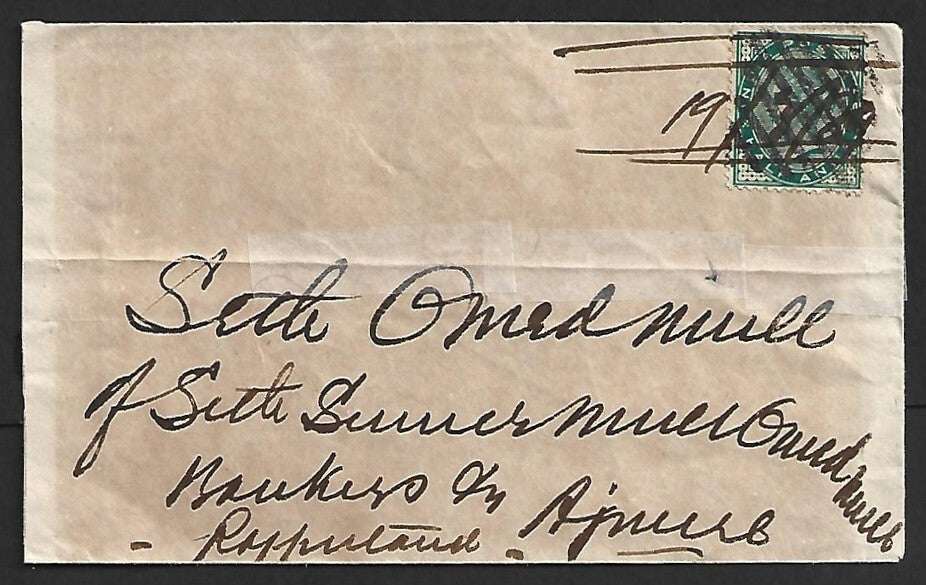 19
HALF ANN
Seth Omed Mull
of Seth Sumer Mull Omed Mull
Bankers &c Ajmere
- Rajputana -